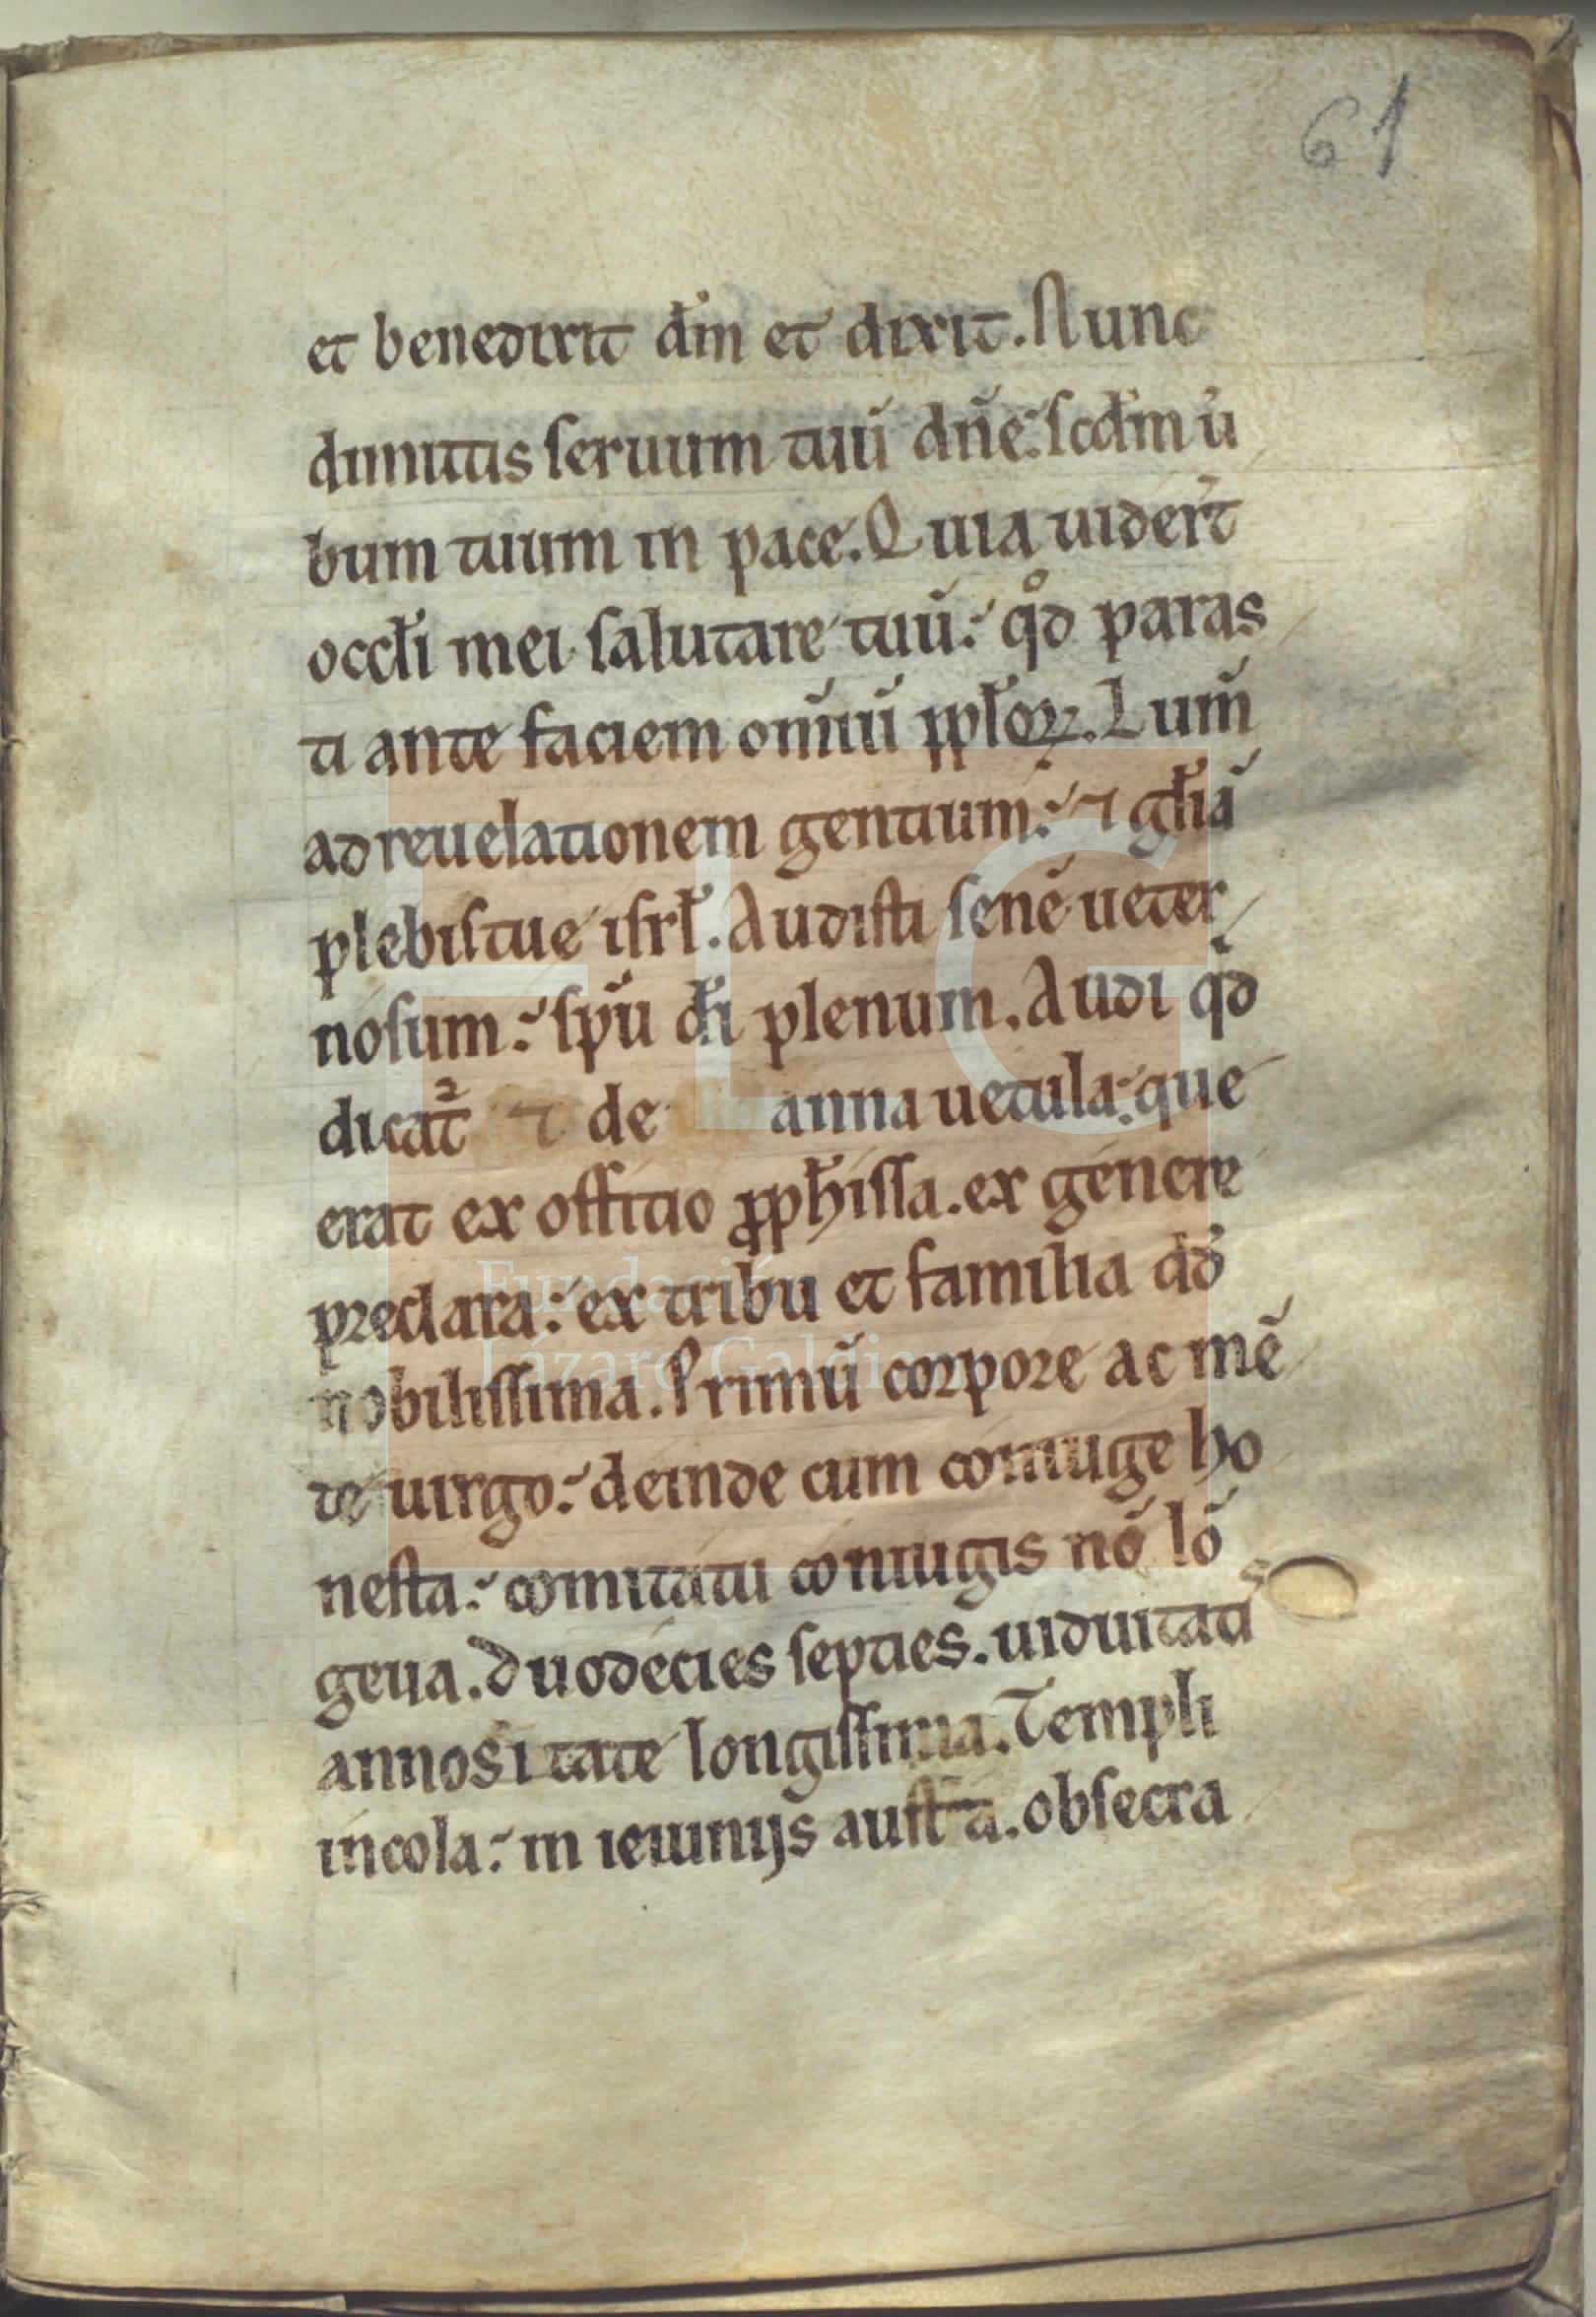 61
et benedixit dm̄ et dixit. Nunc
dimittis seruum tuū dn̄e: scdm̄ u̓
bum tuum in pace. Quia uider̄t
occłi mei salutare tuū: qd̊ paras
ti ante faciem om̄iū ppłoꝝ. Lum̄
ad reuelationem gentium: ⁊ głiā
plebis tue isrł. Audisti senē ueter
nosum: sp̄u di̅ plenum. Audi qd̓
dicat᷑ ⁊ de anna uetula: que
erat ex offitio ꝓph̄issa. ex genere
preclara: ex tribu et familia dd̓
nobilissima. Primū corpore ac mē
te uirgo: deinde cum coniuge ho
nesta: comitatu coniugis nō lō
geua. duodecies septies. uiduitati̓s
annositate longissima. Templi
incola: in ieiunijs aust̄a. obsecra
Fundación
Lázaro Galdiano